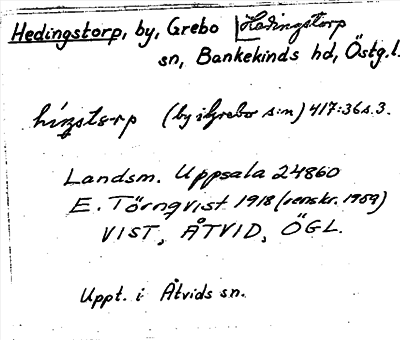 Hedingstorp, by, Grebo Hedingstorp
sn, Bankekinds hd, Östg.l.
hi̇́ŋstərp (by i Grebo s:n) 417:36 s. 3.
Landsm. Uppsala 24860
E. Törnqvist 1918 (renskr. 1959)
VIST, ÅTVID, ÖGL.
Uppt. i Åtvids sn.